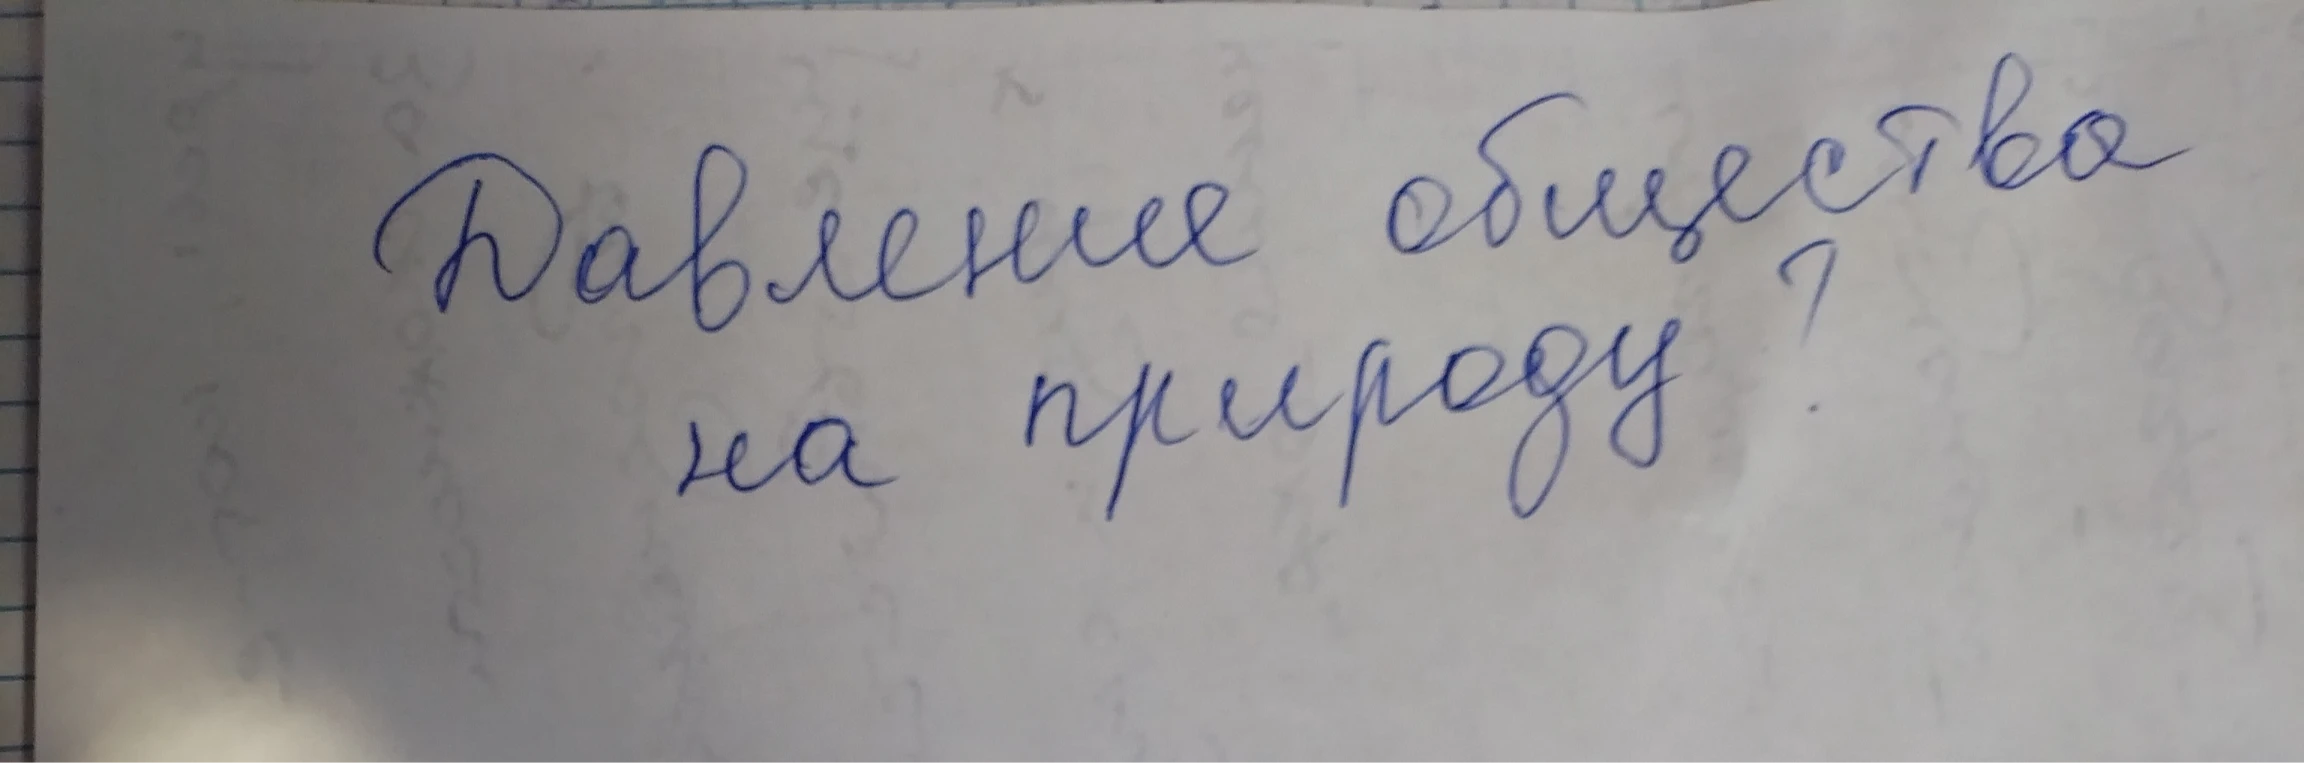 Давление общества
на природу?